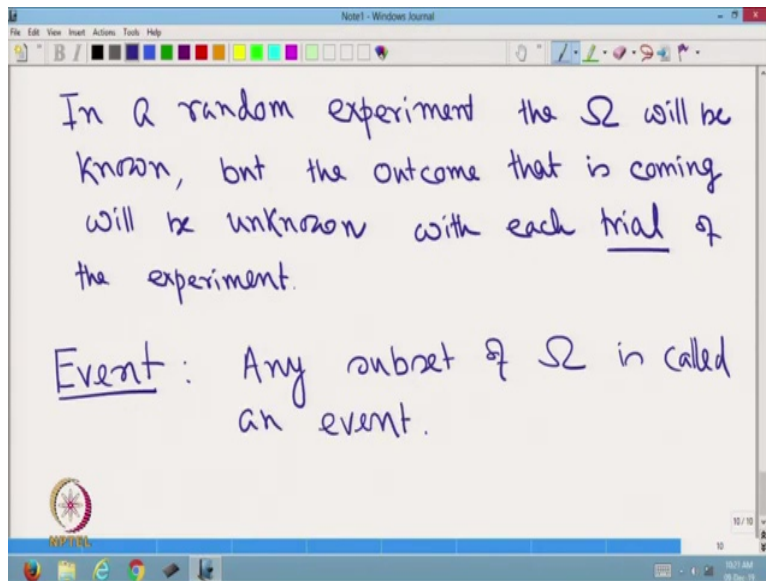 Note1 - Windows Journal
File Edit View Insert Actions Tools Help
In a random experiment the Ω will be
known, but the outcome that is coming
will be unknown with each trial of
the experiment.
Event: Any subset of Ω is called
an event.
NPTEL
10/10
10
10:21 AM